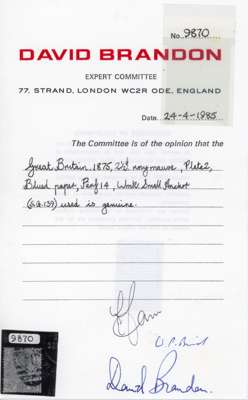 No. 9870
DAVID BRANDON
EXPERT COMMITTEE
77, STRAND, LONDON WC2R ODE, ENGLAND
Date 24-4-1985
The Committee is of the opinion that the
Great Britain, 1875, 2½d rosy mauve, Plate 2,
Blued paper, Perf 14, Wmk Small Anchor
(S.G. 139) used is genuine.
9870
David Brandon.